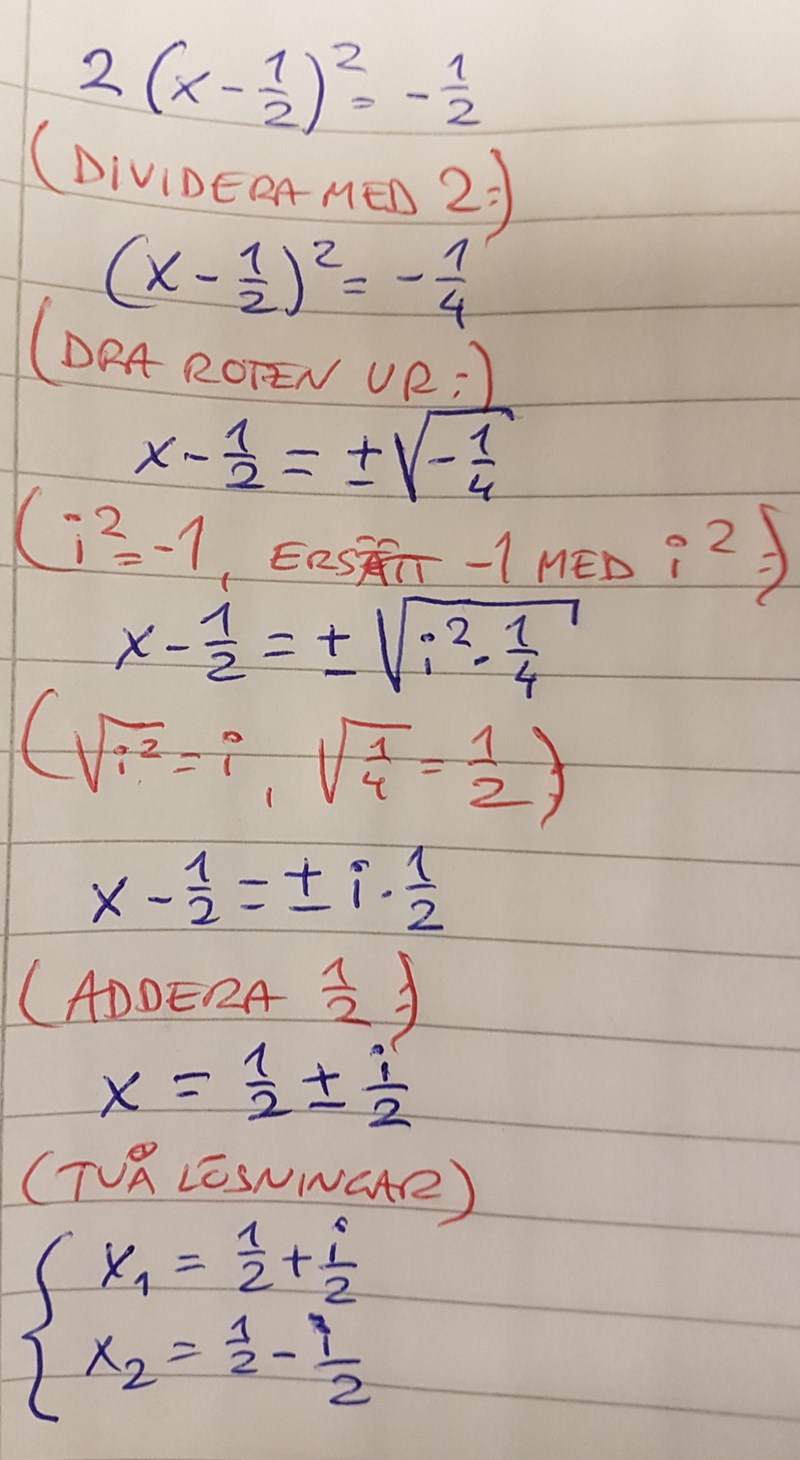 2(x - 1/2)² = - 1/2
(DIVIDERA MED 2:)
(x - 1/2)² = - 1/4
(DRA ROTEN UR:)
x - 1/2 = ± √(- 1/4)
(i² = -1, ERSÄTT -1 MED i²:)
x - 1/2 = ± √(i² · 1/4)
(√i² = i, √(1/4) = 1/2:)
x - 1/2 = ± i · 1/2
(ADDERA 1/2:)
x = 1/2 ± i/2
(TVÅ LÖSNINGAR)
{ x₁ = 1/2 + i/2
x₂ = 1/2 - i/2